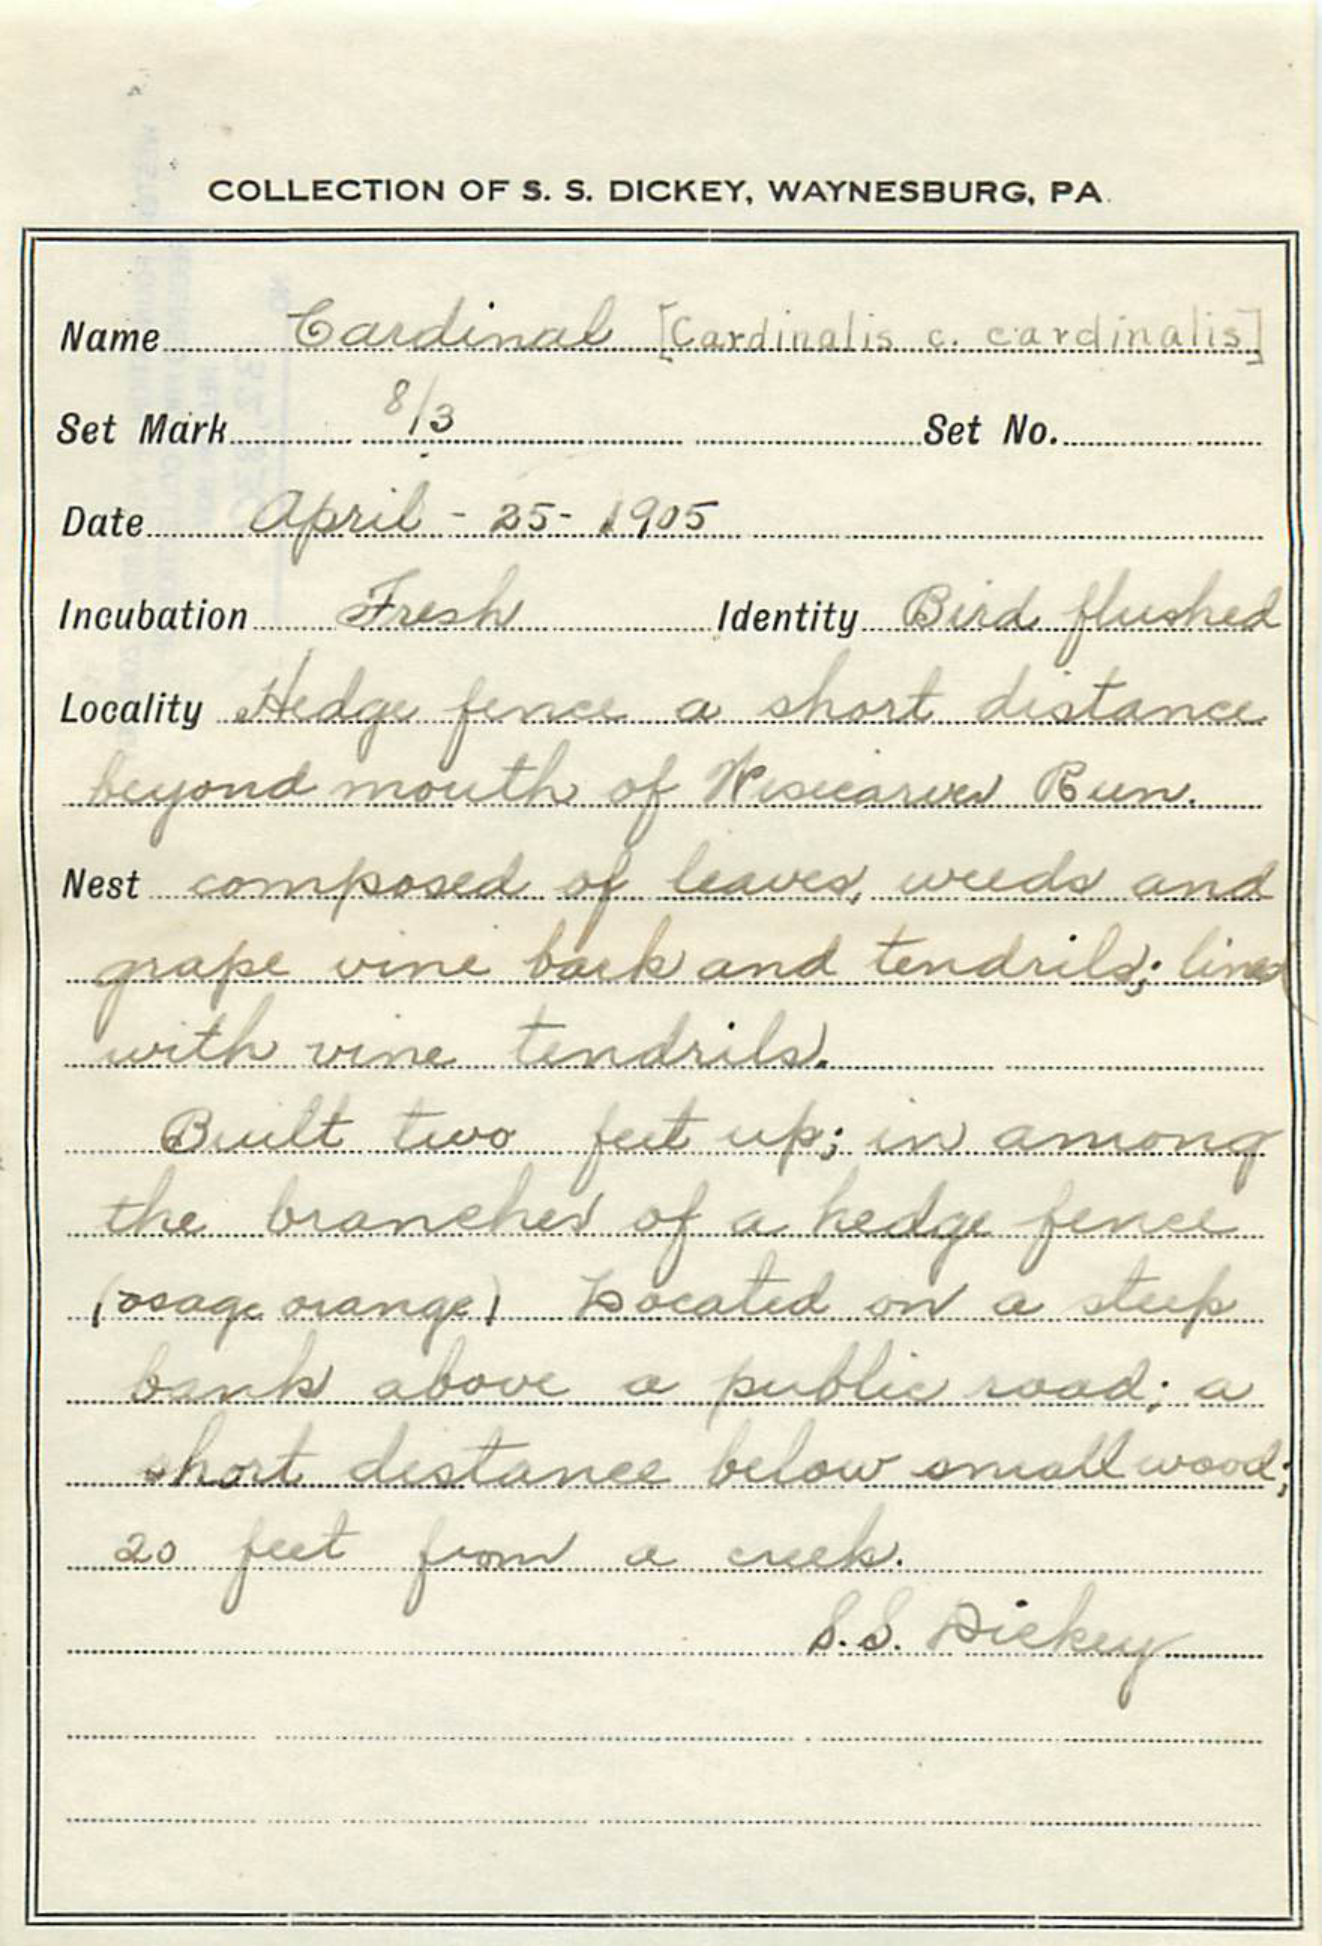 COLLECTION OF S. S. DICKEY, WAYNESBURG, PA.
Name Cardinal [Cardinalis c. cardinalis]
Set Mark 8/3 Set No.
Date April - 25 - 1905
Incubation Fresh Identity Bird flushed
Locality Hedge fence a short distance
beyond mouth of Run.
Nest composed of leaves, weeds and
grape vine bark and tendrils; lined
with vine tendrils.
Built two feet up; in among
the branches of a hedge fence
(osage orange) Located on a steep
bank above a public road; a
short distance below small wood;
20 feet from a creek.
S.S. Dickey